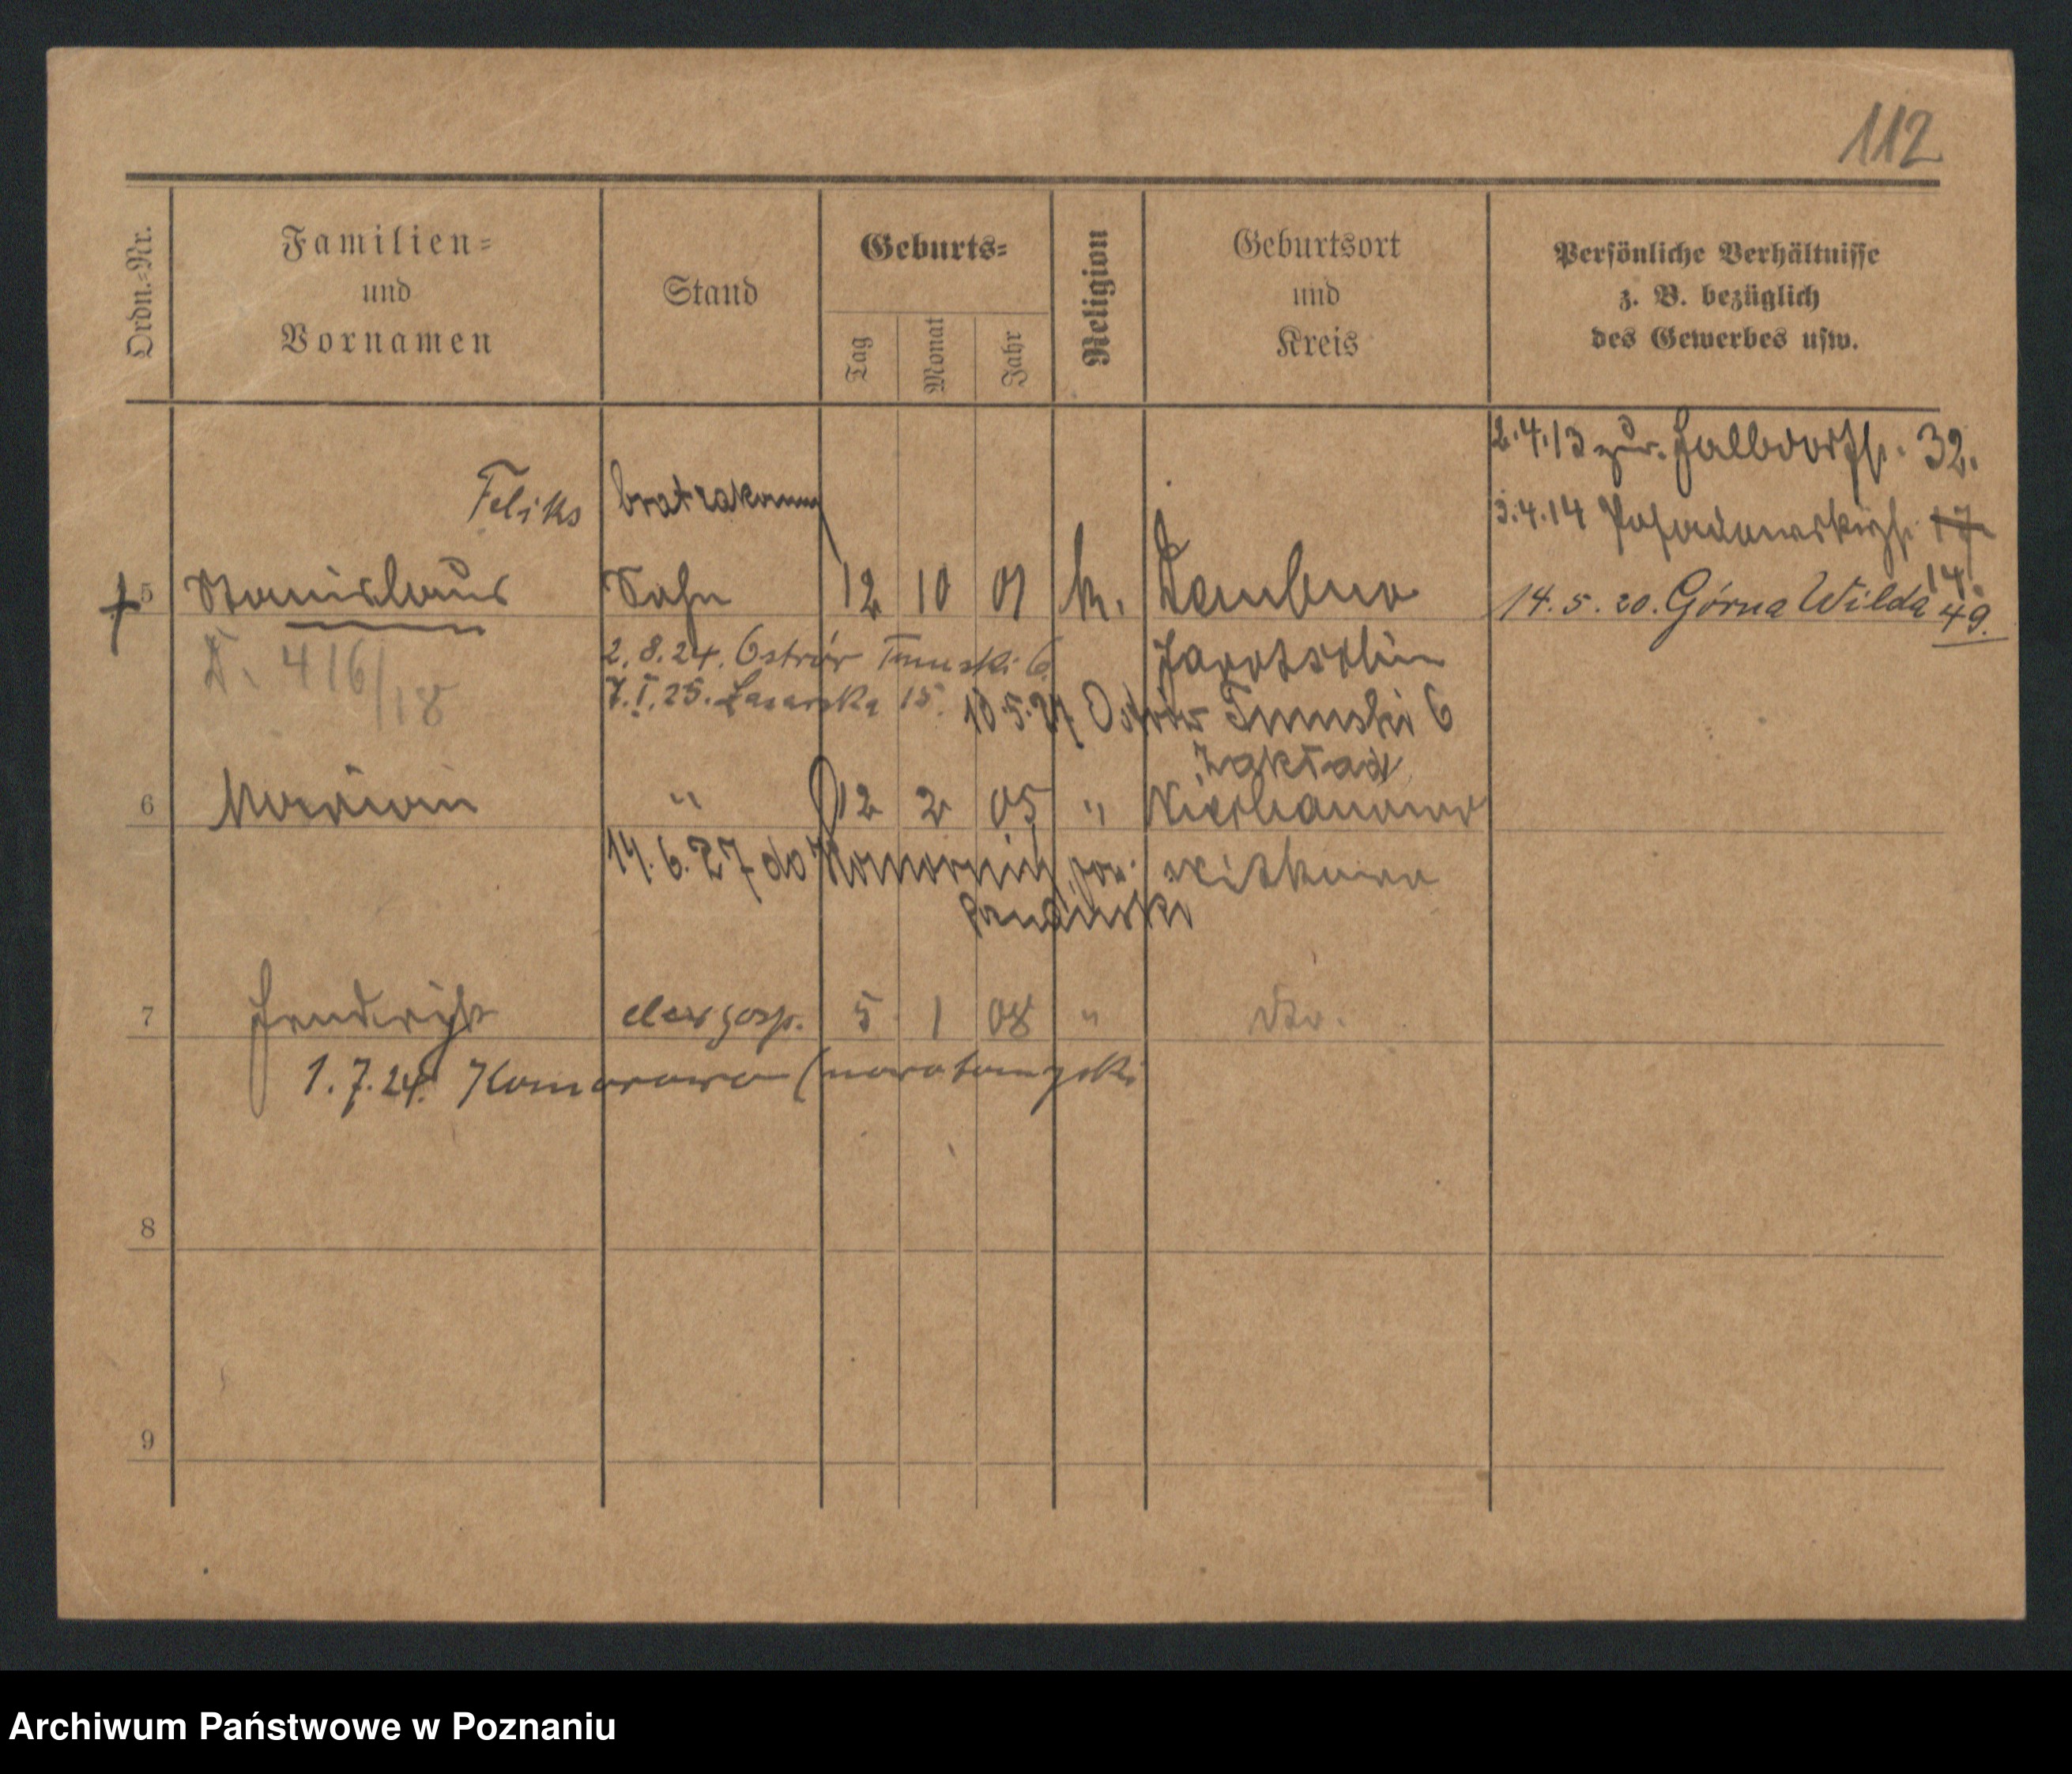 112
Ordn.-Nr.
Familien-
und
Vornamen
Stand
Geburts-
Tag
Monat
Jahr
Religion
Geburtsort
und
Kreis
Persönliche Verhältnisse
z. B. bezüglich
des Gewerbes usw.
2.4.13 zur. 32.
3.4.14 17
14.
14.5.20. Górna Wilda 49.
Feliks brat zakonny
5 Stanislaus Sohn 12 10 01 k. Dembno
Jarotschin
416/18
2.8.24. Ostrów Tumski 6
7.I.25. 15. 10.5.27 Ostrów Tumski 6
Zakład
6 Marian " 12 2 05 "
Witkowo
14.6.27 do pow.
7 5 1 08 " dto.
1.7.24. Komorowo (nowotomyski
8
9
Archiwum Państwowe w Poznaniu